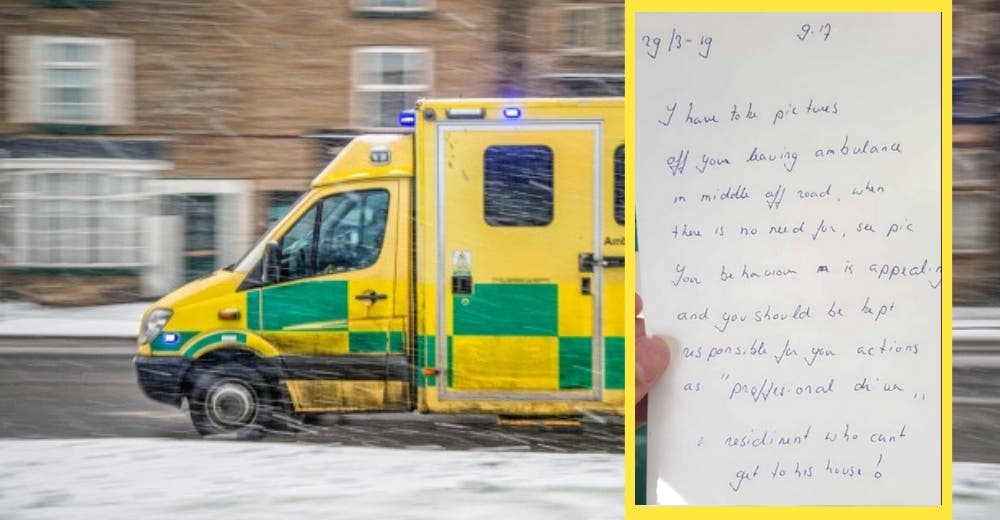 29/3-19 9.17
I have toke pictures
off your leaving ambulance
in middle off road, when
there is no need for, see pic
Your behaviour is appealin
and you should be kept
responsible for you actions
as "proffesional driver„
residinent who cant
get to his house!
Amb